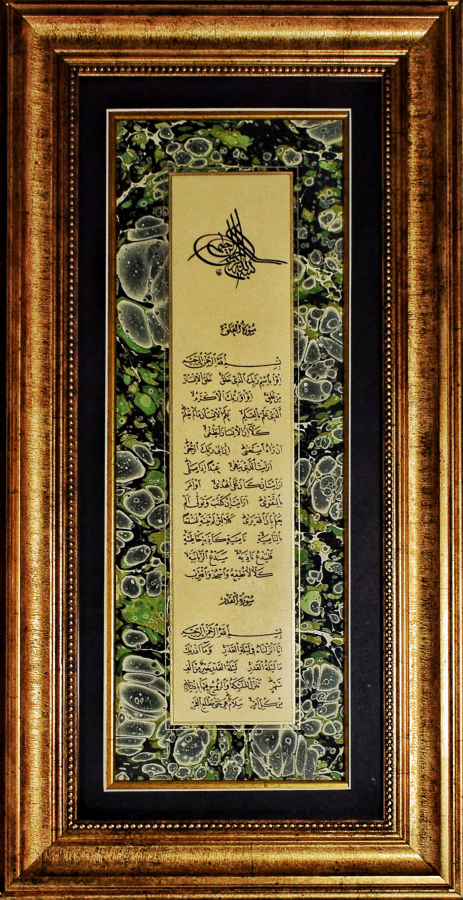 بسم الله الرحمن الرحيم
سورة العلق
بسم الله الرحمن الرحيم
اقرأ باسم ربك الذي خلق خلق الإنسان
من علق اقرأ وربك الأكرم
الذي علم بالقلم علم الإنسان ما لم يعلم
كلا إن الإنسان ليطغى
أن رآه استغنى إن إلى ربك الرجعى
أرأيت الذي ينهى عبدا إذا صلى
أرأيت إن كان على الهدى أو أمر
بالتقوى أرأيت إن كذب وتولى ألم
يعلم بأن الله يرى كلا لئن لم ينته لنسفعا
بالناصية ناصية كاذبة خاطئة
فليدع ناديه سندع الزبانية
كلا لا تطعه واسجد واقترب
سورة القدر
بسم الله الرحمن الرحيم
إنا أنزلناه في ليلة القدر وما أدراك
ما ليلة القدر ليلة القدر خير من ألف
شهر تنزل الملائكة والروح فيها بإذن ربهم
من كل أمر سلام هي حتى مطلع الفجر